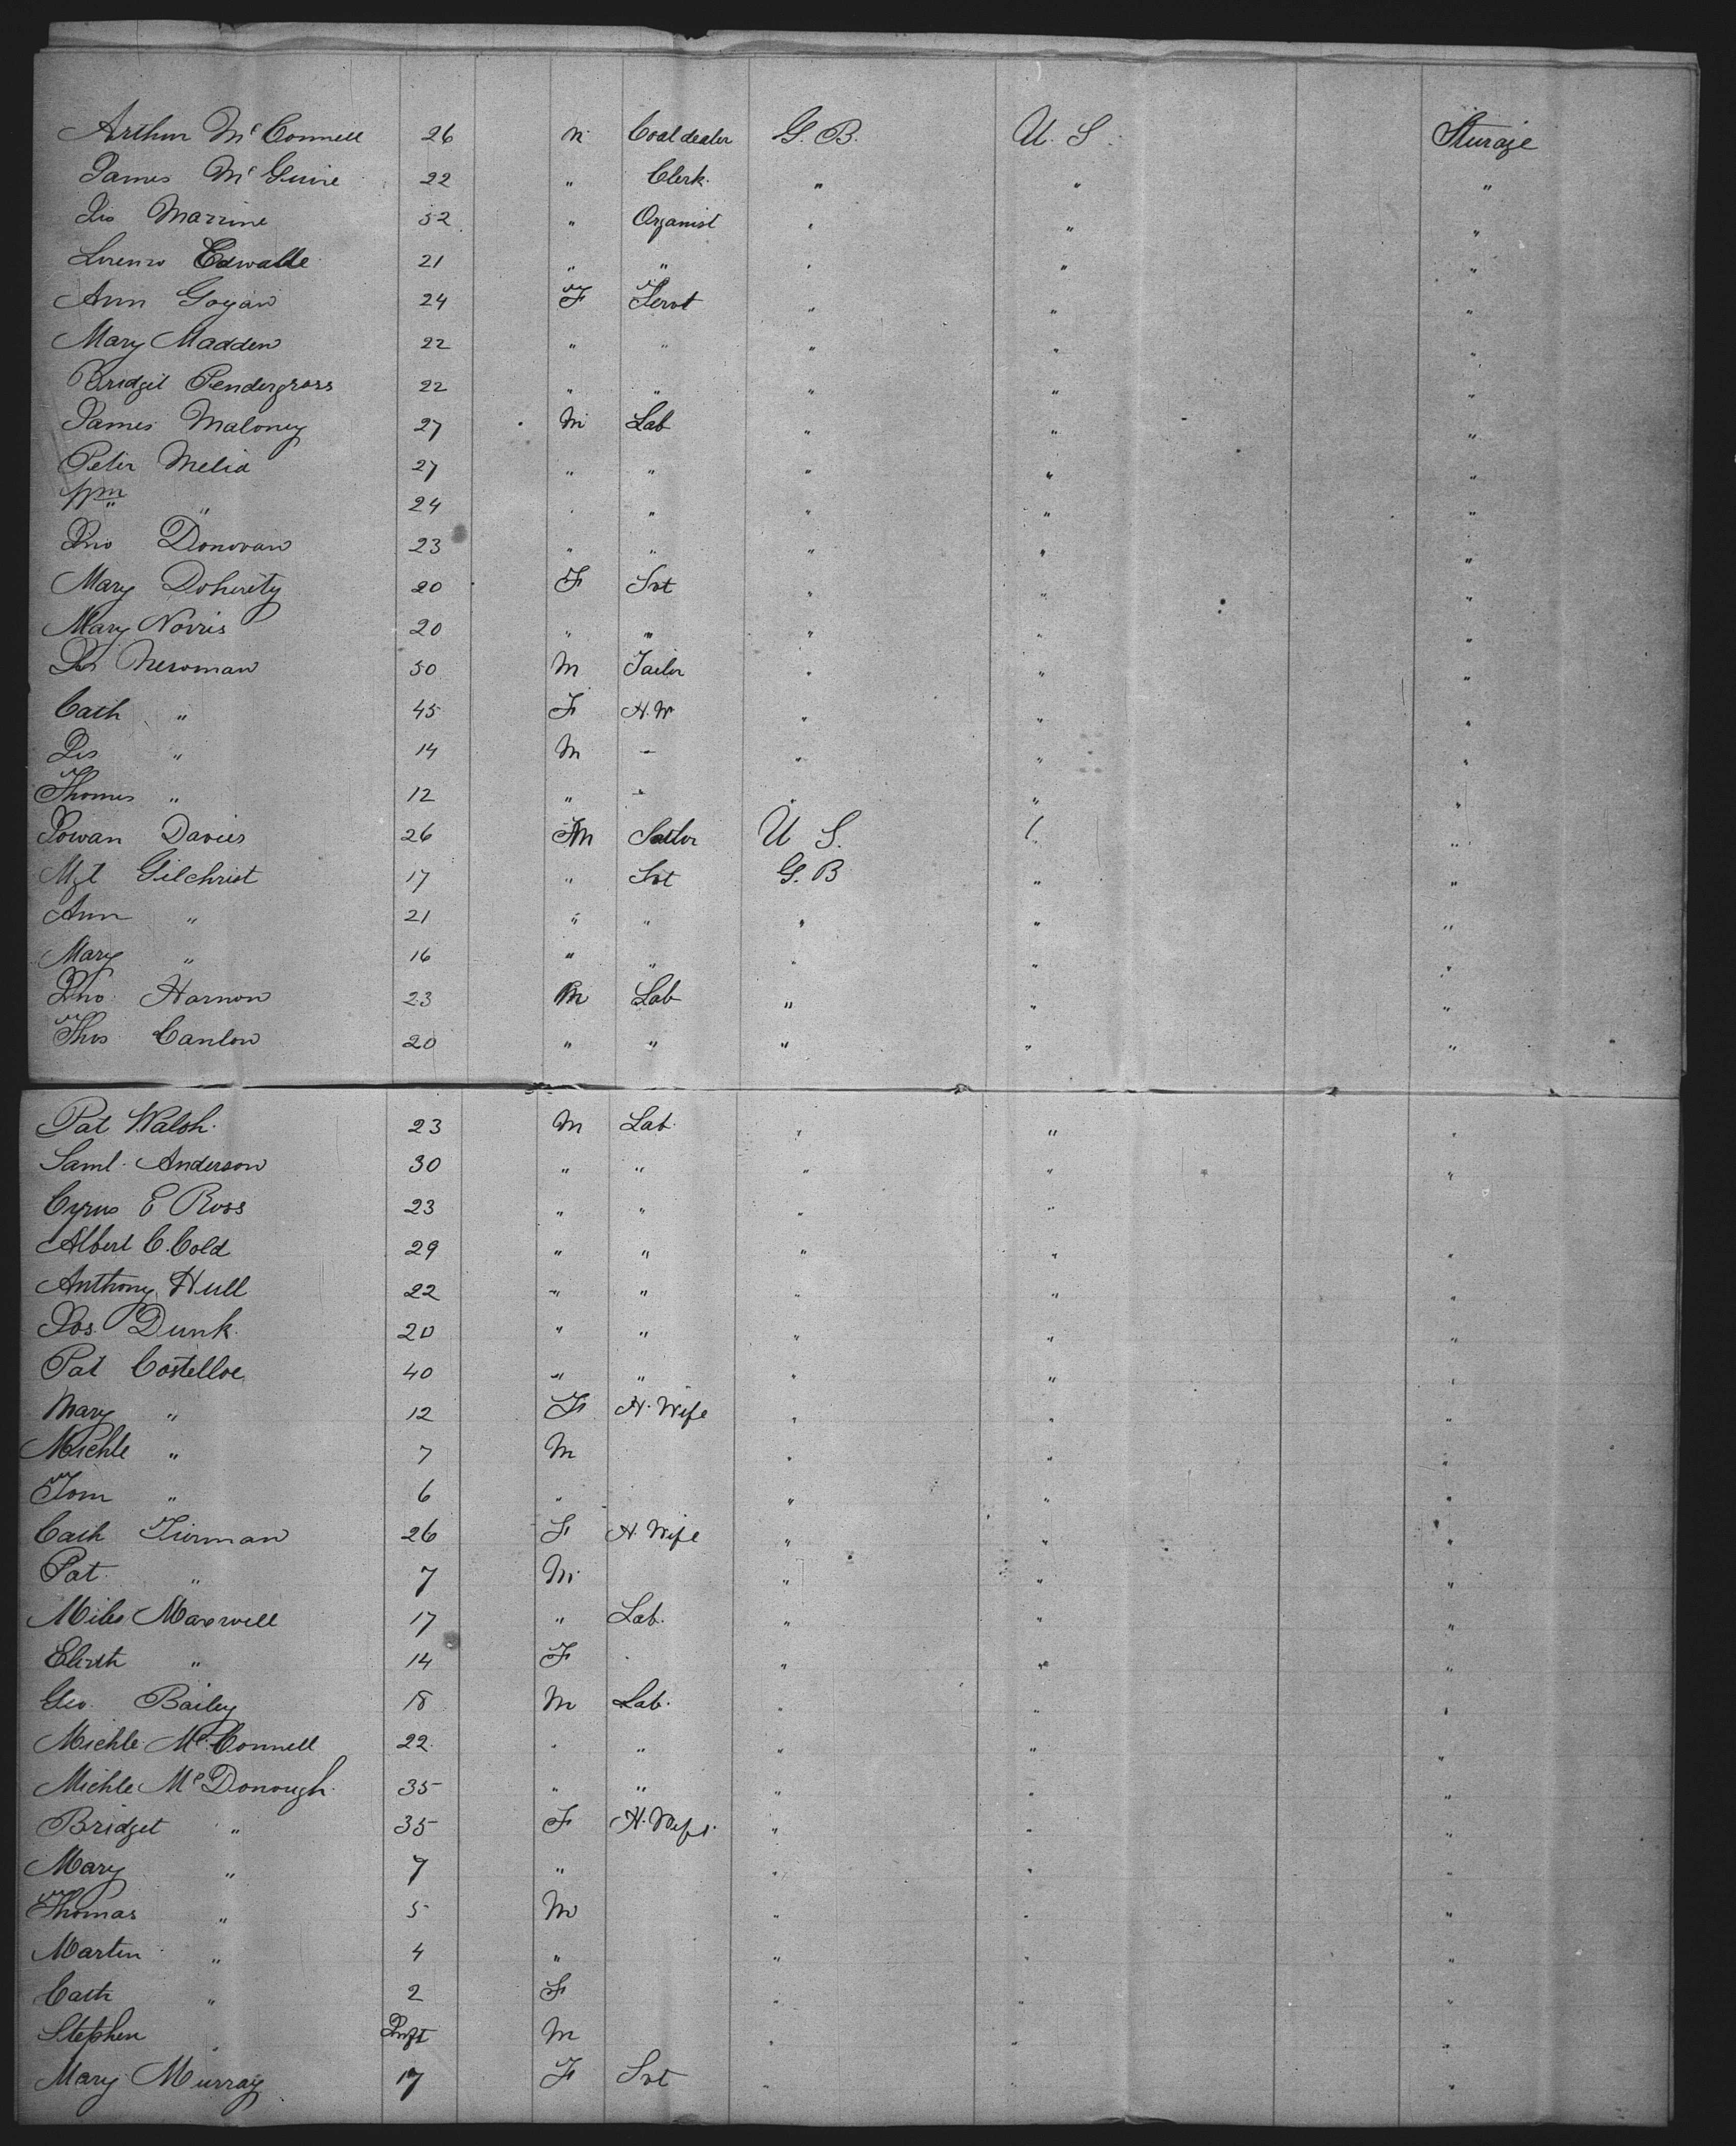 Arthur McConnell 26 M Coal dealer G. B. U. S. Sturage
James McGuire 22 " Clerk " " "
Marrine 52 " Organist " " "
Lorenzo 21 " " " " "
Ann Gogan 24 F Servt " " "
Mary Madden 22 " " " " "
Bridget Pendergrass 22 " " " " "
James Maloney 27 M Lab " " "
Peter Melia 27 " " " " "
Wm " 24 " " " " "
Jno Donovan 23 " " " " "
Mary Doherity 20 F Svt " " "
Mary Norris 20 " " " " "
Newman 50 M Tailor " " "
Cath " 45 F H.W " " "
Jas " 14 M - " " "
Thomas " 12 " - " " "
Davies 26 M Sailor U S. "
Mgt Gilchrist 17 " Svt G. B " "
Ann " 21 " " " " "
Mary " 16 " " " " "
Jno Harnon 23 M Lab " " "
Thos Canlon 20 " " " " "
Pat Walsh 23 M Lab " " "
Saml Anderson 30 " " " " "
Cyrus E Ross 23 " " " "
Albert C. Cold 29 " " " " "
Anthony Hull 22 " " " " "
Jos. Dunk 20 " " " " "
Pat Costelloe 40 " " " " "
Mary " 12 F H. Wife " " "
Michle " 7 M " " "
Tom " 6 " " " "
Cath Tiernan 26 F H. Wife " " "
Pat " 7 M " " "
Miles Maxwell 17 " Lab. " " "
Elizth " 14 F " " "
Geo. Bailey 18 M Lab. " " "
Michle McConnell 22 " " " " "
Michle McDonough 35 " " " " "
Bridget " 35 F H. Wife " " "
Mary " 7 " " " "
Thomas " 5 M " " "
Martin " 4 " " " "
Cath " 2 F " " "
Stephen " Inft M " " "
Mary Murray 17 F Svt " " "